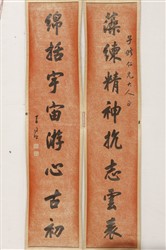 藻練精神抗志雲表
子鶴仁兄大人正
綿括宇宙游心古初